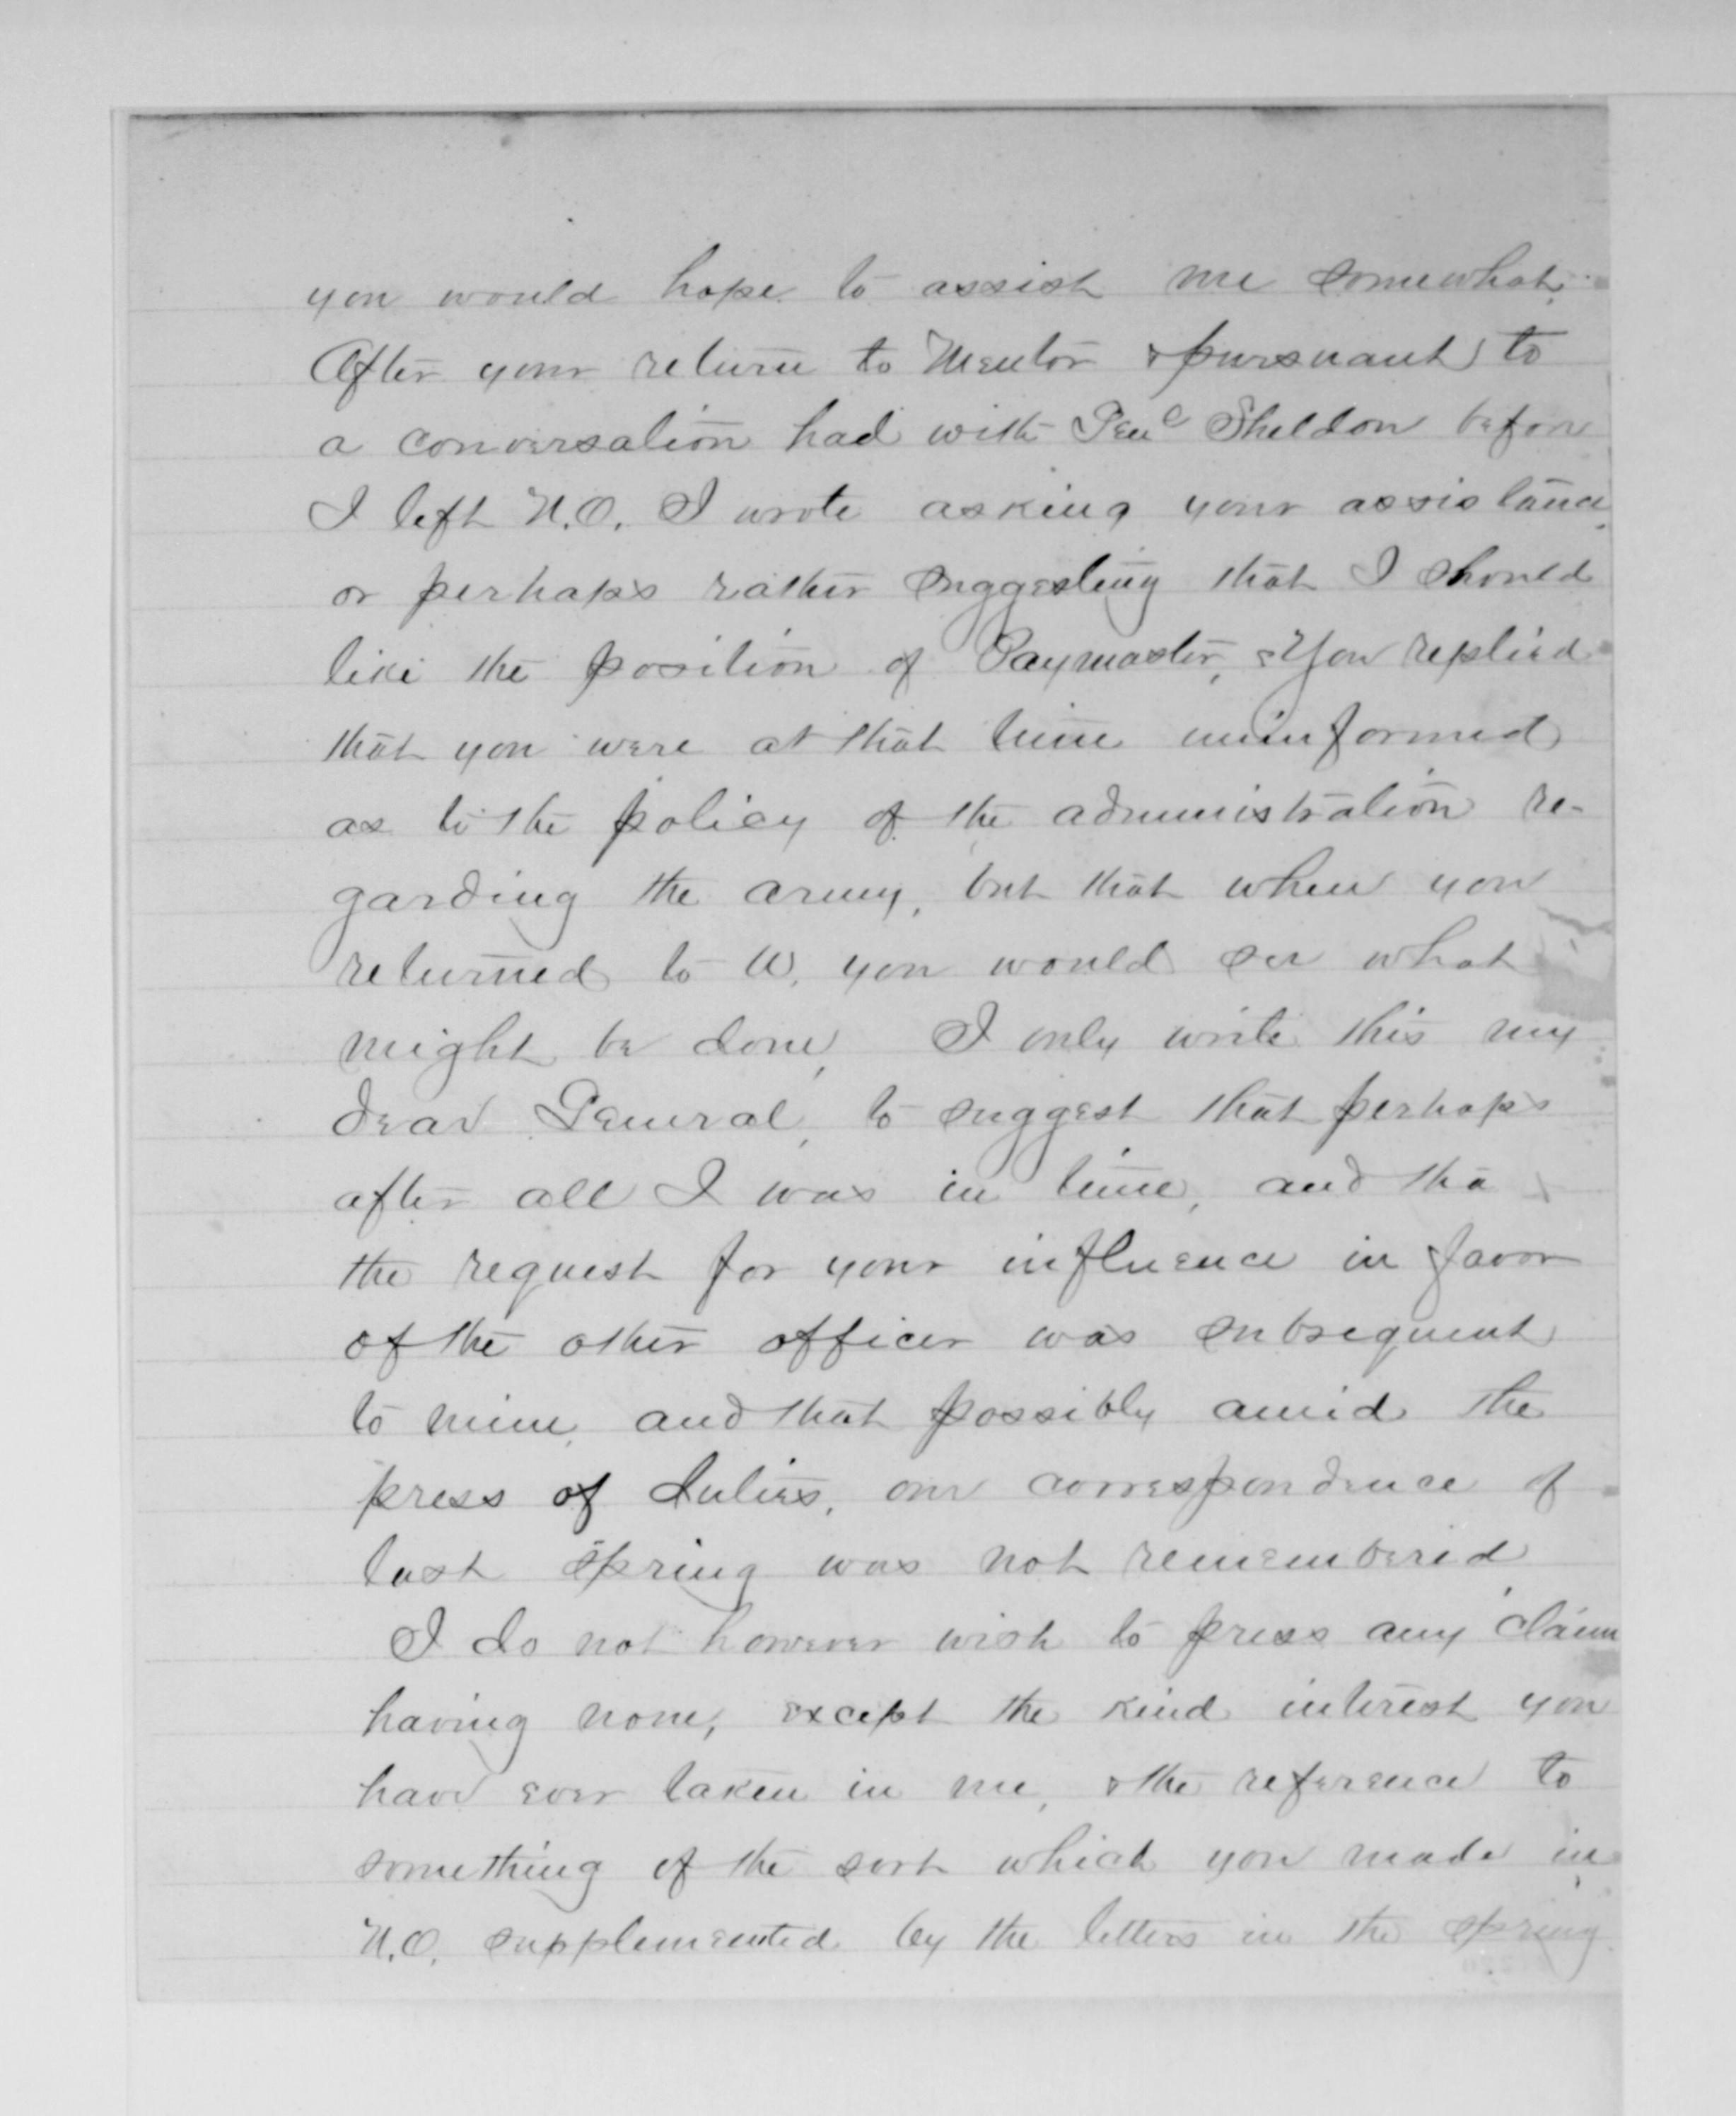 you would hope to assist me somewhat.
After your return to Mentor & pursuant to
a conversation had with Genl Sheldon before
I left N.O. I wrote asking your assistance,
or perhaps rather suggesting that I should
like the position of Paymaster, & you replied
that you were at that time uninformed
as to the policy of the administration re-
garding the army, but that when you
returned to W. you would see what
might be done, I only write this my
dear General, to suggest that perhaps
after all I was in time, and tha
the request for your influence in favor
of the other officer was subsequent
to mine, and that possibly amid the
press of duties, our correspondence of
last spring was not remembered
I do not however wish to press any claim
having none, except the kind interest you
have ever taken in me, & the reference to
something of the sort which you made in
N.O. supplemented by the letters in the spring